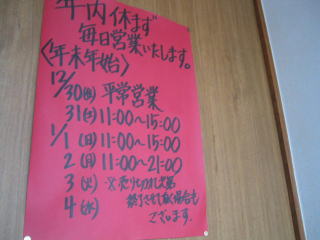 年内休まず
毎日営業いたします。
〈年末年始〉
12/30(金) 平常営業
31(土) 11:00~15:00
1/1(日) 11:00~15:00
2(月) 11:00~21:00
3(火) ※売り切れ次第
4(水) 終了させて頂く場合も
ございます。